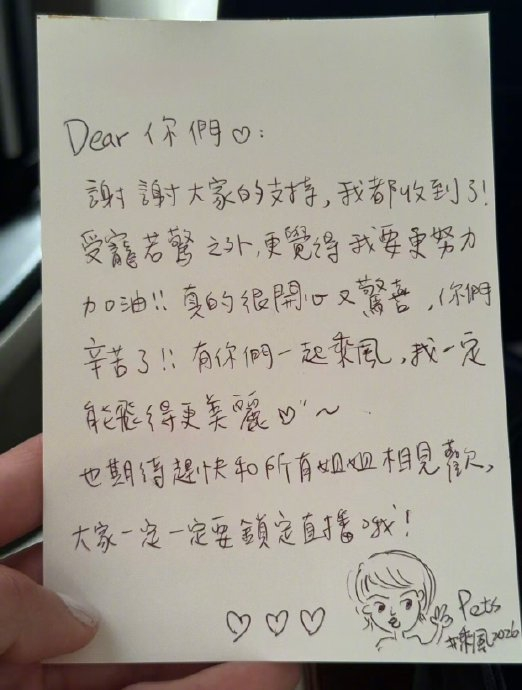 Dear 你們♡:
謝謝大家的支持,我都收到了!
受寵若驚之外,更覺得我要更努力
加油!!真的很開心又驚喜,你們
辛苦了!!有你們一起乘風,我一定
能飛得更美麗♡~
也期待趕快和所有姐姐相見歡,
大家一定一定要鎖定直播哦!
♡♡♡
Pets
#乘風2026